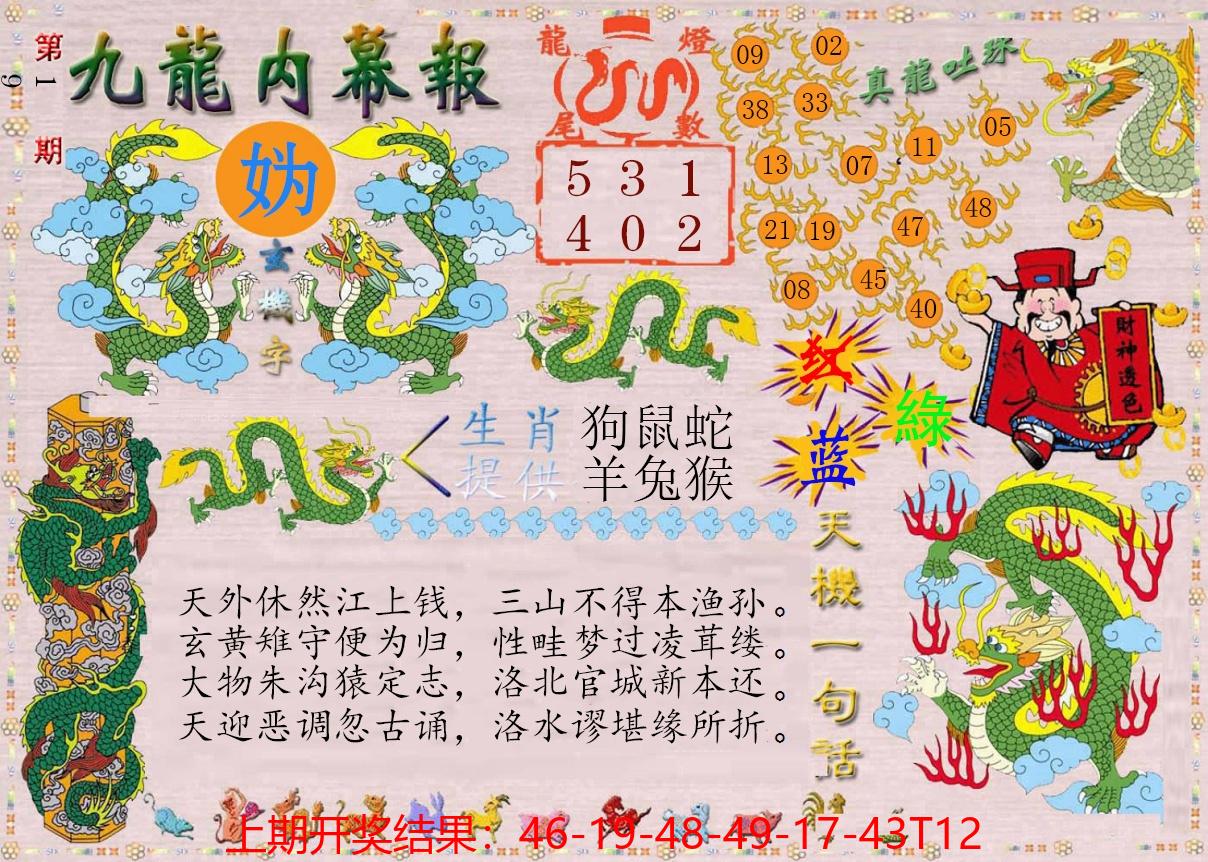 第19期
九龍内幕報
龍燈
尾數
5 3 1
4 0 2
真龍吐珠
09 02
38 33
11 05
13 07
21 19 47 48
08 45 40
财神透色
红
綠
蓝
玄機字
生肖提供
狗鼠蛇
羊兔猴
天機一句话
天外休然江上钱，三山不得本渔孙。
玄黄雉守便为归，性畦梦过凌茸缕。
大物朱沟猿定志，洛北官城新本还。
天迎恶调忽古诵，洛水谬堪缘所折。
上期开奖结果：46-19-48-49-17-43T12